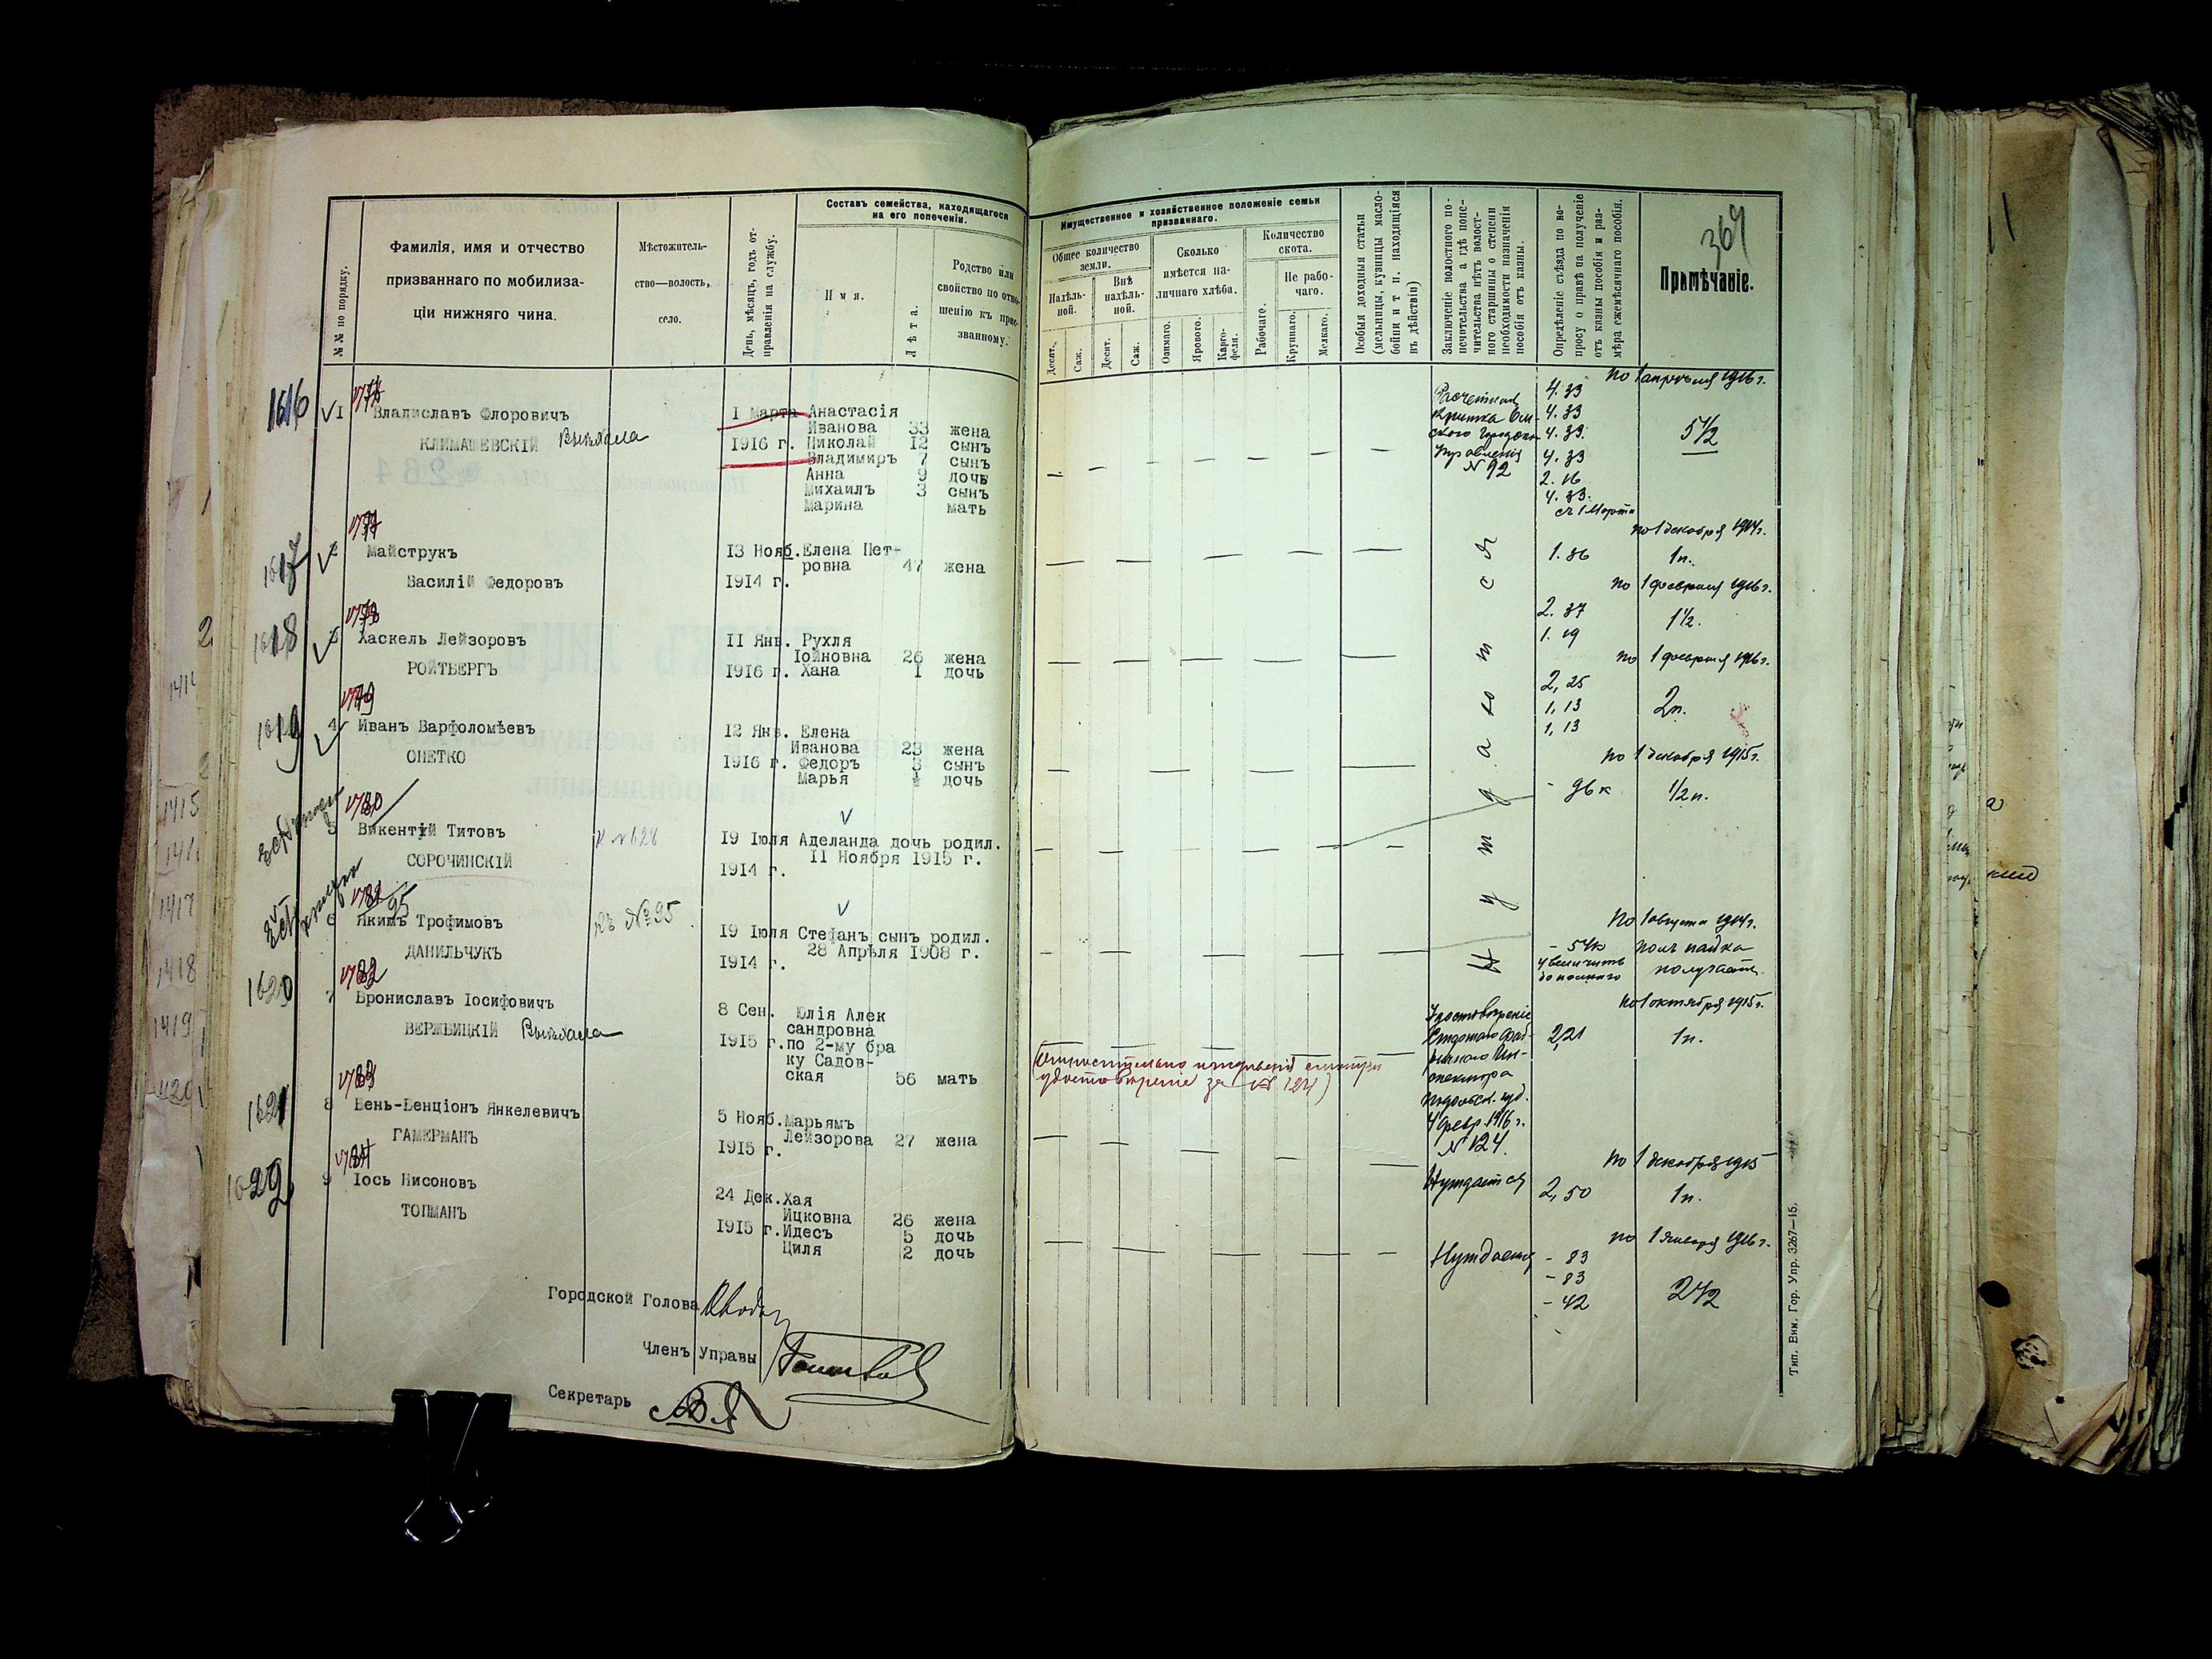 №№ по порядку.
Фамилія, имя и отчество
призваннаго по мобилиза-
ціи нижняго чина.
Мѣстожитель-
ство—волость,
село.
День, мѣсяцъ, годъ от-
правленія на службу.
Составъ семейства, находящагося
на его попеченіи.
Имя.
Лѣта.
Родство или
свойство по отно-
шенію къ приз-
званному.
Имущественное и хозяйственное положеніе семьи
призваннаго.
Общее количество
земли.
Надѣль-
ной.
Внѣ
надѣль-
ной.
Десят.
Саж.
Десят.
Саж.
Сколько
имѣется на-
личнаго хлѣба.
Озимаго.
Яроваго.
Карто-
фели.
Количество
скота.
Рабочаго.
Не рабо-
чаго.
Крупнаго.
Мелкаго.
Особыя доходныя статьи
(мельницы, кузницы масло-
бойни и т п. находящіяся
въ дѣйствіи)
Заключеніе волостного по-
печительства а гдѣ попе-
чительства нѣтъ волост-
ного старшины о степени
необходимости назначенія
пособія отъ казны.
Опредѣленіе съѣзда по во-
просу о правѣ на полученіе
отъ казны пособія и раз-
мѣра ежемѣсячнаго пособія.
364
Примѣчаніе.
1616
1 Владиславъ Флоровичъ
КЛИМАШЕВСКІЙ Выѣхала
I Марта
1916 г.
Анастасія
Иванова 33 жена
Николай 12 сынъ
Владимиръ 7 сынъ
Анна 9 дочь
Михаилъ 3 сынъ
Марина мать
№ 92
4. 33
4. 33
4. 33.
4. 33
2. 16
4. 33.
съ 1 Марта
по 1 апрѣля 1916 г.
5½
1617
Майструкъ
Василій Федоровъ
13 Нояб.
1914 г.
Елена Пет-
ровна 47 жена
1. 86
по 1 декабря 1914 г.
1 п.
1618
Хаскель Лейзоровъ
РОЙТБЕРГЪ
II Янв.
1916 г.
Рухля
Іойновна 26 жена
Хана 1 дочь
2. 37
1. 19
по 1 февраля 1916 г.
1½.
1619
4 Иванъ Варфоломѣевъ
ОНЕТКО
12 Янв.
1916 г.
Елена
Иванова 23 жена
Федоръ 3 сынъ
Марья дочь
2, 25
1, 13
1, 13
по 1 февраля 1916 г.
2 п.
5 Викентій Титовъ
СОРОЧИНСКІЙ
19 Іюля
1914 г.
Аделанда дочь родил.
II Ноября 1915 г.
- 96 к
по 1 декабря 1915 г.
1/2 п.
6 Якимъ Трофимовъ
ДАНИЛЬЧУКЪ
къ № 95
19 Іюля
1914 г.
Стефанъ сынъ родил.
28 Апрѣля 1908 г.
Нуждаются
- 54 к
увеличить
до полнаго
По 1 августа 1914 г.
полъ пайка
получаетъ
1620
7 Брониславъ Іосифовичъ
ВЕРЖБИЦКІЙ Выѣхала
8 Сен.
1915 г.
Юлія Алек
сандровна
по 2-му бра
ку Садов-
ская 56 мать
Удостовѣреніе
4 Февр. 1916 г.
№ 124.
2,21
по 1 октября 1915 г.
1 п.
1621
8 Бень-Бенціонъ Янкелевичъ
ГАМЕРМАНЪ
5 Нояб.
1915 г.
Марьямъ
Лейзорова 27 жена
Нуждается
2, 50
по 1 декабря 1915
1 п.
1622
9 Іось Нисоновъ
ТОПМАНЪ
24 Дек.
1915 г.
Хая
Ицковна 26 жена
Идесъ 5 дочь
Циля 2 дочь
Нуждается
- 83
- 83
- 42
по 1 Января 1916 г.
2½
Городской Голова
Членъ Управы
Секретарь
Тип. Вин. Гор. Упр. 3267—15.